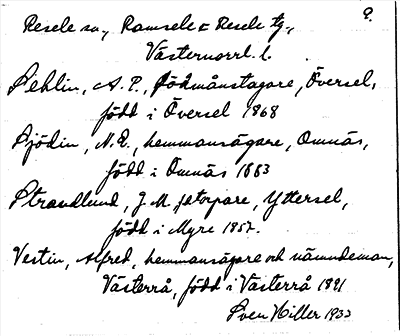 9.
Resele sn, Ramsele o Resele tg,
Västernorrl. l.
Sehlin, A. P., födmånstagare, Översel,
född i Översel 1868
Sjödin, N. E., hemmansägare, Omnäs,
född i Omnäs 1883
Strandlund, J. M., f.torpare, Yttersel,
född i Myre 1857.
Vestin, Alfred, hemmansägare och nämndeman,
Västerrå, född i Västerrå 1891
Sven Hiller 1933